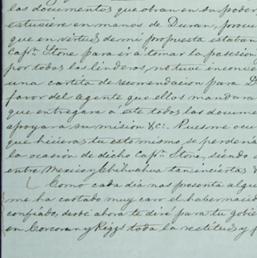 las documentos que obran en su poder
estuviere en manos de Duran, procu
que en virtud de mi propuesta estaban
Capn. Stone para ir a tomar la posesion
por todos los linderos, no tuve inconve
una cartita de recomendacion para D
favor del agente que ellos mandara
que entregara á este todos las docume
apoyara su mision &c. Pues me ocu
que hicieras tu esto mismo, se perderia
la ocasion de dicho Capn. Stone, siendo
entre Mexico y Chihuahua tan inciertas &
Como cada dia nos presenta algu
me ha costado muy caro el haber nacido
confiado, desde ahora te diré para tu gobie
en Corcoran y Riggs toda la rectitud y f